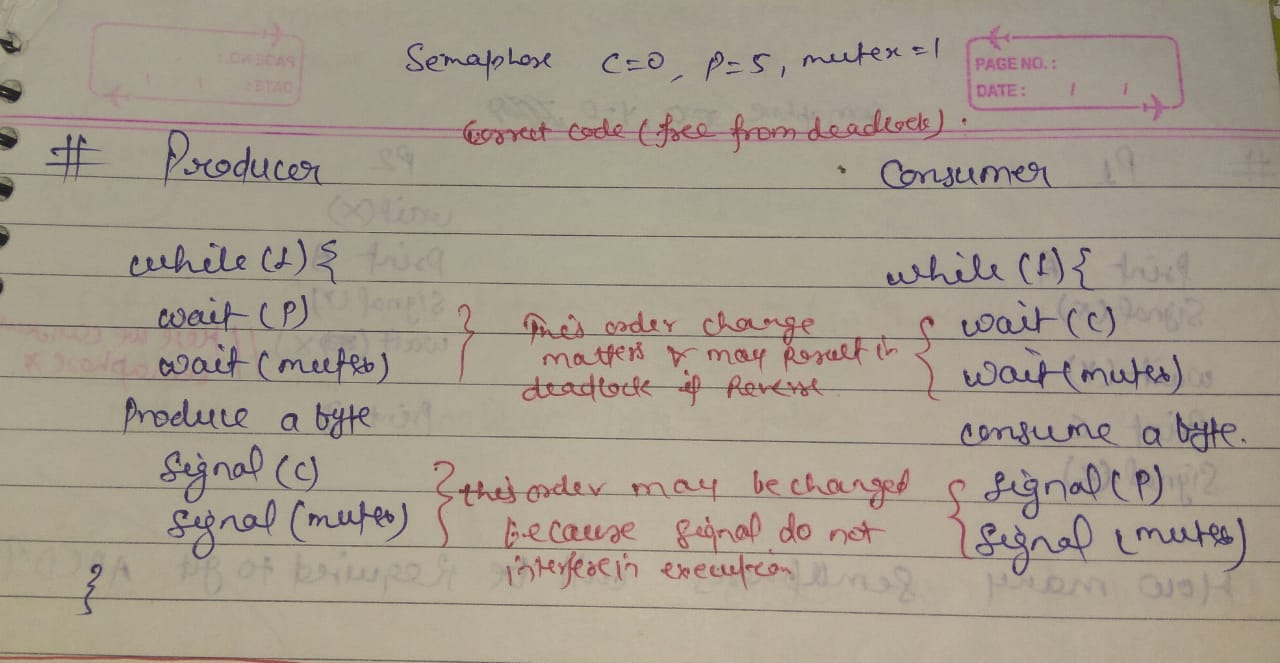 Semaphore C=0, P=5, mutex=1
PAGE NO.:
DATE: / /
Correct code (free from deadlock).
# Producer
Consumer
while (1) {
wait (P)
wait (mutex)
Produce a byte
Signal (C)
Signal (mutex)
}
This order change
matters & may Result in
deadlock if Reverse
this order may be changed
because signal do not
interfere in execution
while (1) {
wait (C)
wait (mutex)
consume a byte.
Signal (P)
Signal (mutex)